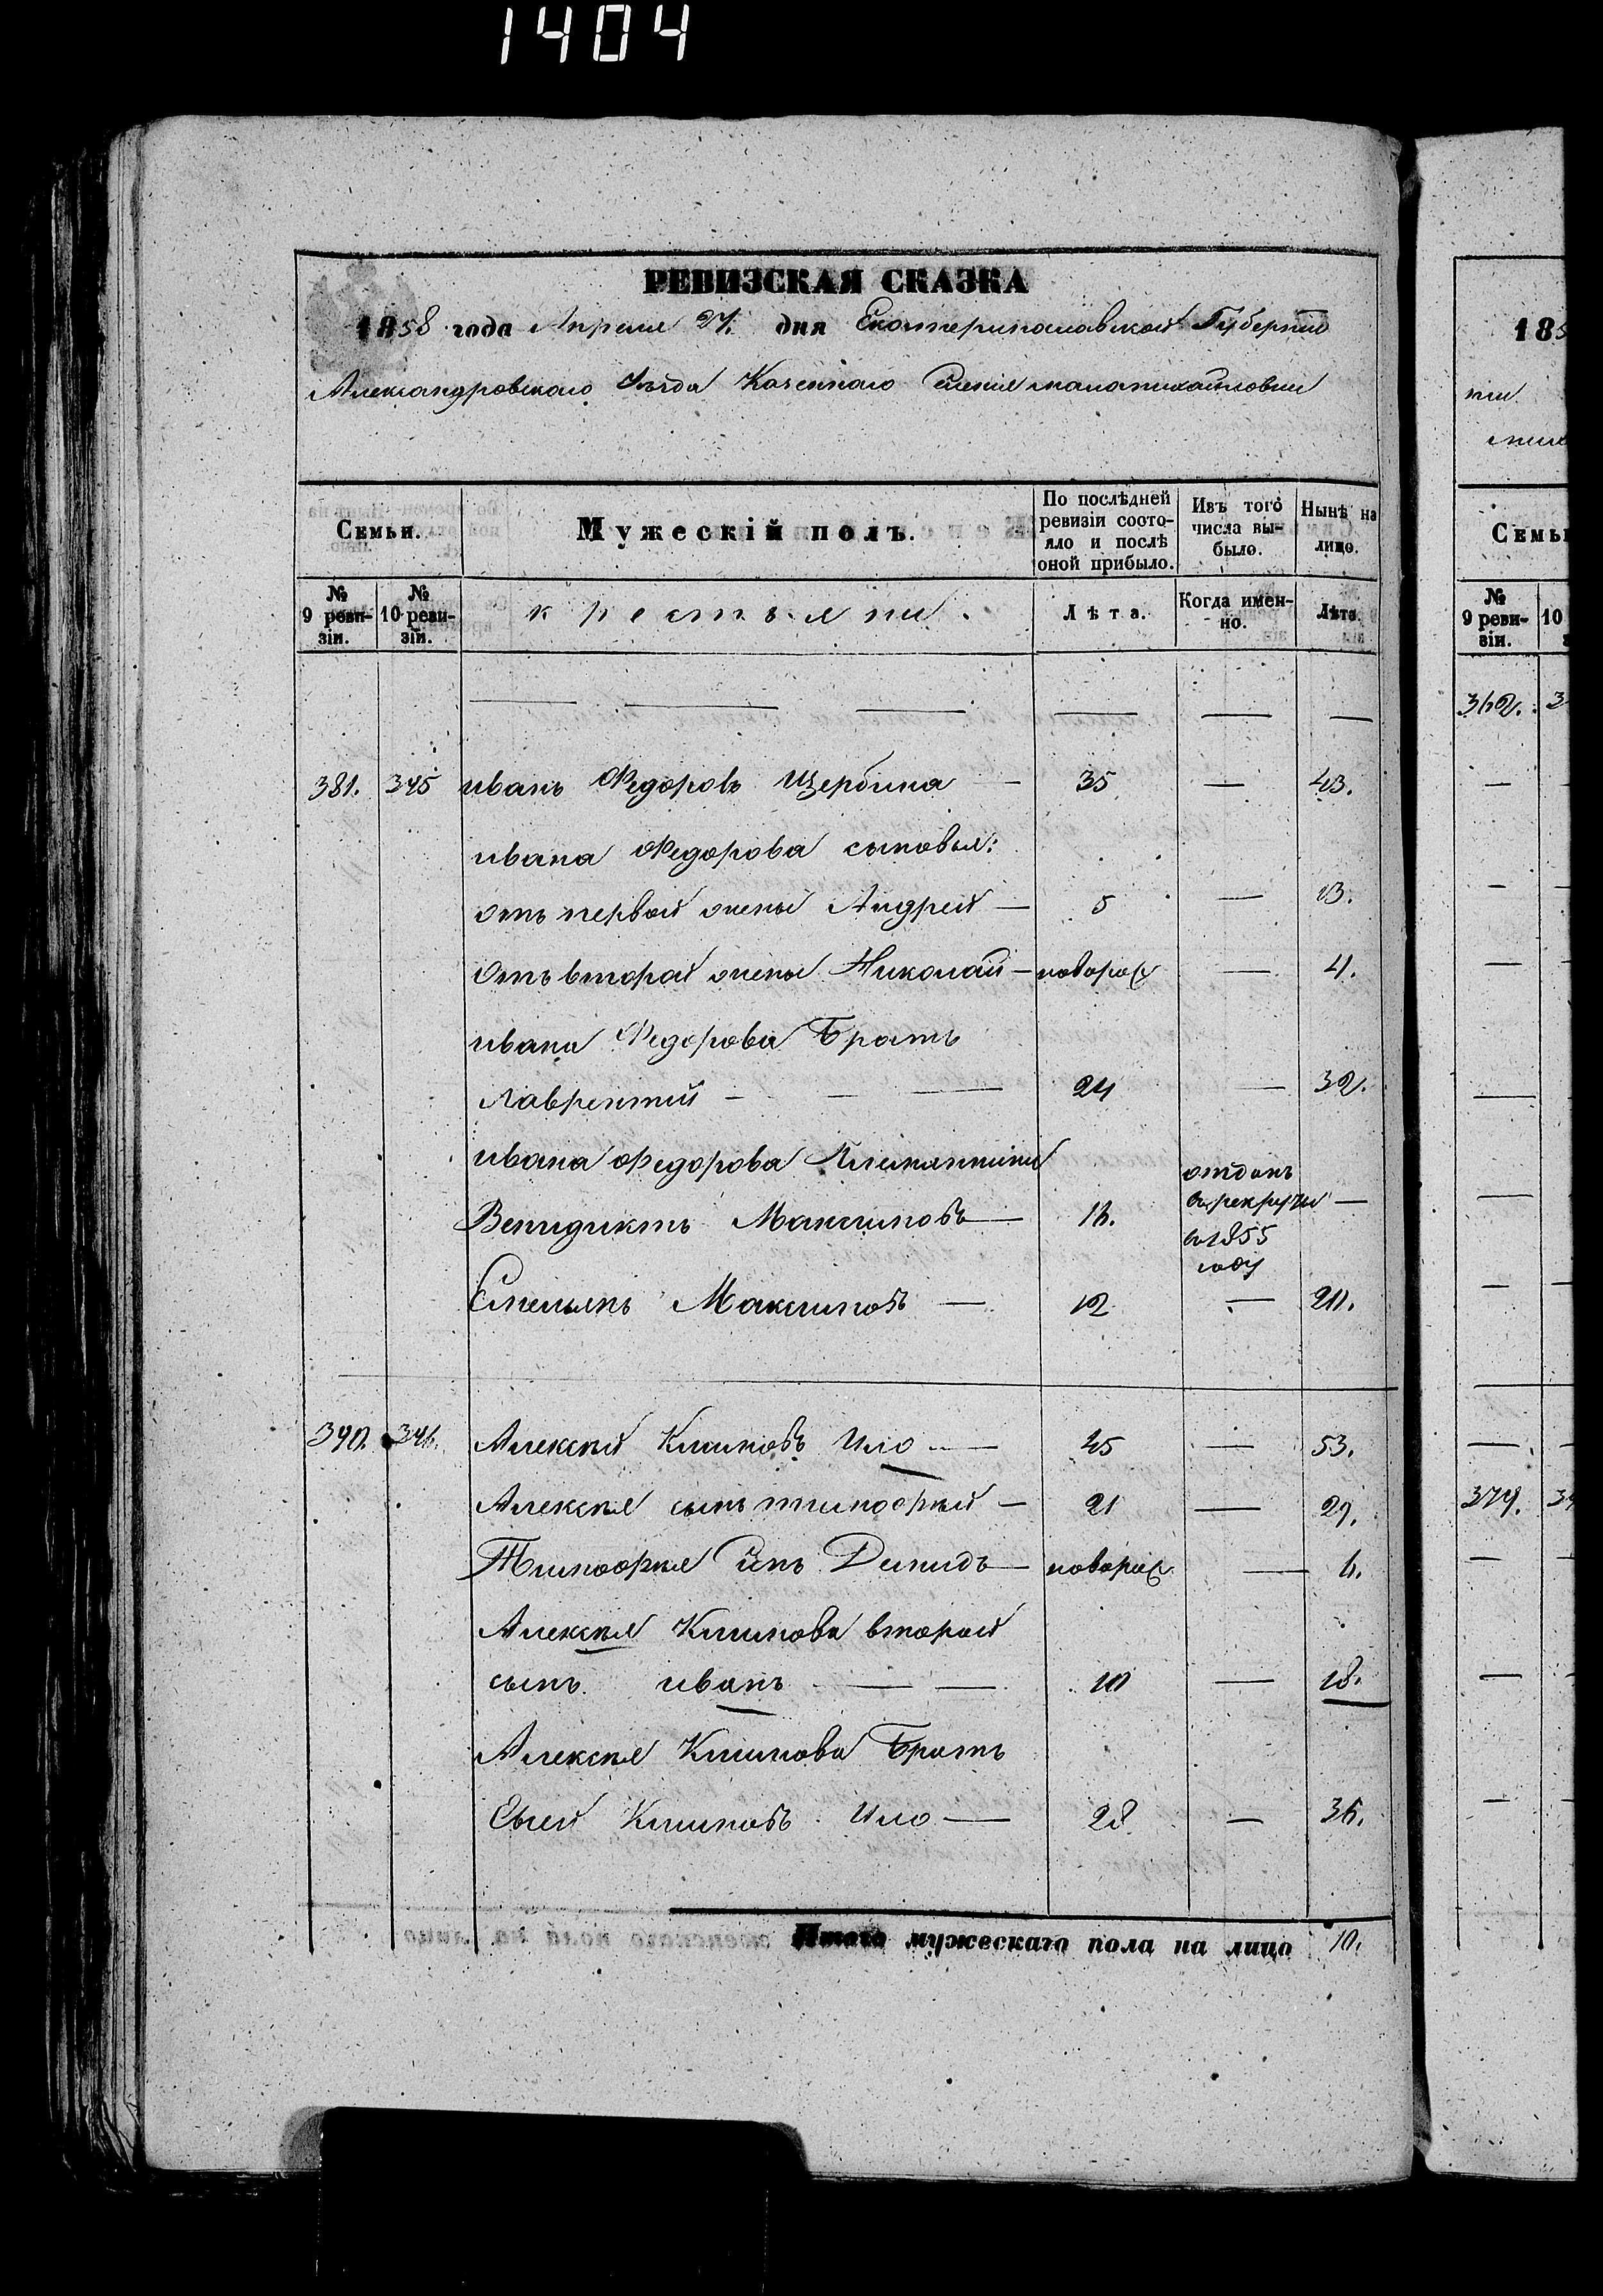 1404
РЕВИЗСКАЯ СКАЗКА
1858 года Апреля 27. дня Екатеринославской Губернiи
Александровскаго Уѣзда Казеннаго Селенiя маломихайловки
Семьи.
Мужескій полъ.
По послѣдней ревизіи состояло и послѣ оной прибыло.
Изъ того числа выбыло.
Нынѣ на лицо.
№ 9 ревизіи.
№ 10 ревизіи.
крестьяни.
Лѣта.
Когда именно.
Лѣта
381. 345 иванъ Федоровъ Щербина — 35 — 43.
ивана Федорова сыновья:
отъ первой жены Андрей — 5 — 13.
отъ второй жены Николай — поворож — 4.
ивана Федорова Братъ
Лаврентий — — — 24 — 32.
ивана Федорова Племянники
Венидиктъ Максимовъ — 16. отданъ въ рекруты в 1855 году —
Емельянъ Максимовъ — 12 — 20.
390. 346. Алексѣй Климовъ Ило — 45 — 53.
Алексѣя сынъ тимофѣй — 21 — 29.
Тимофѣя Сынъ Демидъ — поворож — 6.
Алексѣя Климова второй
сынъ иванъ — — 10 — 18.
Алексѣя Климова Братъ
Евсей Климовъ Ило — 28 — 36.
Итого мужескаго пола на лицо 10.
185
Семьи
№ 9 ревизіи.
10
362. 3
379. 34